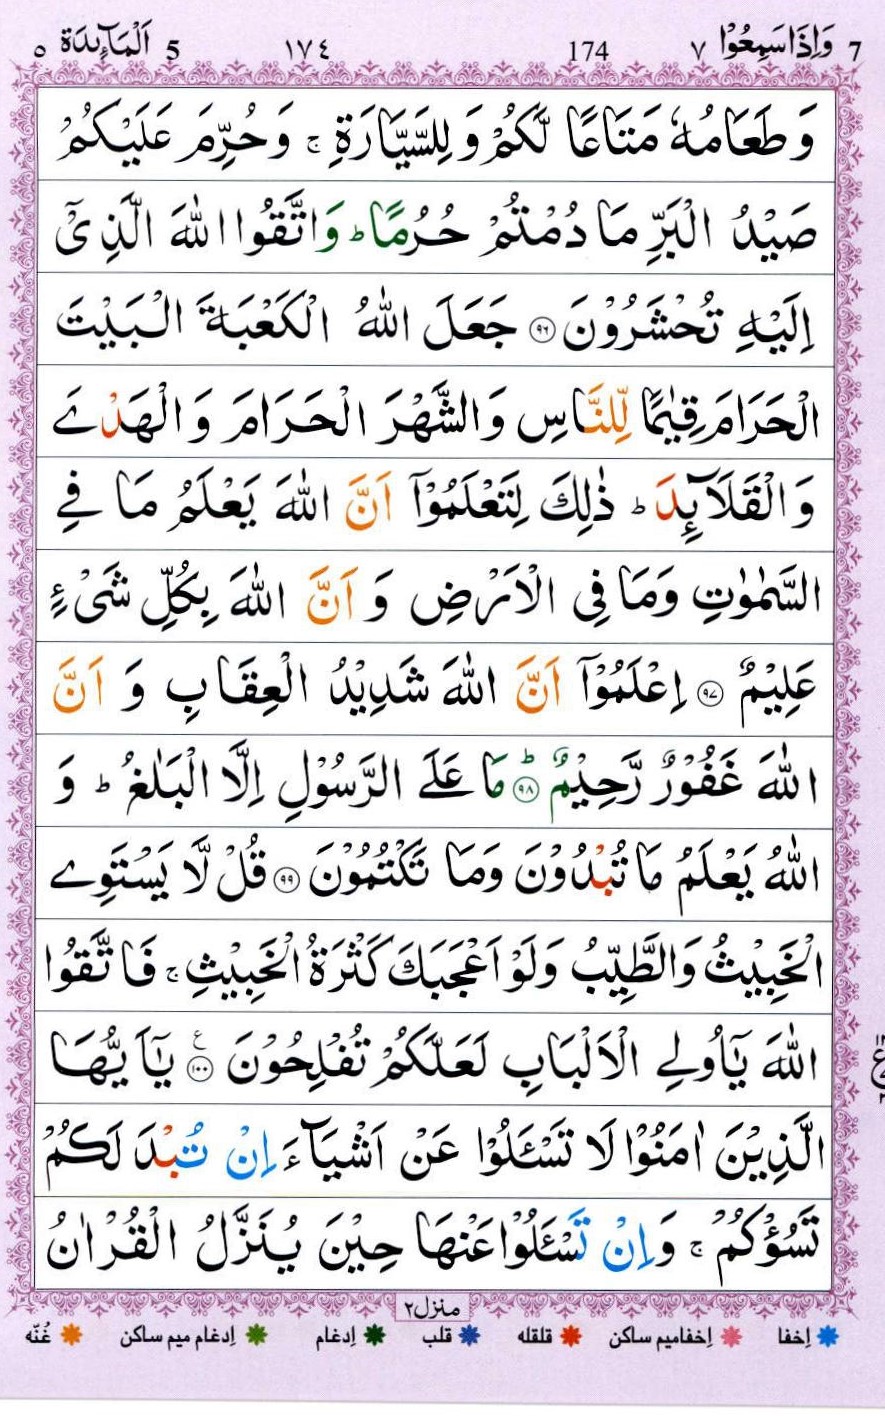 ٥ اَلْمَآئِدَة 5 ١٧٤ 174 ٧ وَاِذَاسَمِعُوْا 7
وَطَعَامُهٗ مَتَاعًا لَّكُمْ وَلِلسَّيَّارَةِ ۚ وَحُرِّمَ عَلَيْكُمْ
صَيْدُ الْبَرِّ مَا دُمْتُمْ حُرُمًا ؕ وَاتَّقُوا اللّٰهَ الَّذِیْۤ
اِلَيْهِ تُحْشَرُوْنَ ﴿٩٦﴾ جَعَلَ اللّٰهُ الْكَعْبَةَ الْبَيْتَ
الْحَرَامَ قِيٰمًا لِّلنَّاسِ وَالشَّهْرَ الْحَرَامَ وَالْهَدْیَ
وَالْقَلَآئِدَ ؕ ذٰلِكَ لِتَعْلَمُوْۤا اَنَّ اللّٰهَ يَعْلَمُ مَا فِی
السَّمٰوٰتِ وَمَا فِی الْاَرْضِ وَ اَنَّ اللّٰهَ بِكُلِّ شَیْءٍ
عَلِيْمٌ ﴿٩٧﴾ اِعْلَمُوْۤا اَنَّ اللّٰهَ شَدِيْدُ الْعِقَابِ وَ اَنَّ
اللّٰهَ غَفُوْرٌ رَّحِيْمٌ ﴿٩٨﴾ؕ مَا عَلَی الرَّسُوْلِ اِلَّا الْبَلٰغُ ؕ وَ
اللّٰهُ يَعْلَمُ مَا تُبْدُوْنَ وَمَا تَكْتُمُوْنَ ﴿٩٩﴾ قُلْ لَّا يَسْتَوِی
الْخَبِيْثُ وَالطَّيِّبُ وَلَوْ اَعْجَبَكَ كَثْرَةُ الْخَبِيْثِ ۚ فَاتَّقُوا
اللّٰهَ يٰۤاُولِی الْاَلْبَابِ لَعَلَّكُمْ تُفْلِحُوْنَ ﴿١٠٠﴾ ع يٰۤاَيُّهَا
الَّذِيْنَ اٰمَنُوْا لَا تَسْـَٔلُوْا عَنْ اَشْيَآءَ اِنْ تُبْدَ لَكُمْ
تَسُؤْكُمْ ۚ وَاِنْ تَسْـَٔلُوْا عَنْهَا حِيْنَ يُنَزَّلُ الْقُرْاٰنُ
منزل٢
اِخفا اِخفامیم ساکن قلقله قلب اِدغام اِدغام میم ساکن غُنّه